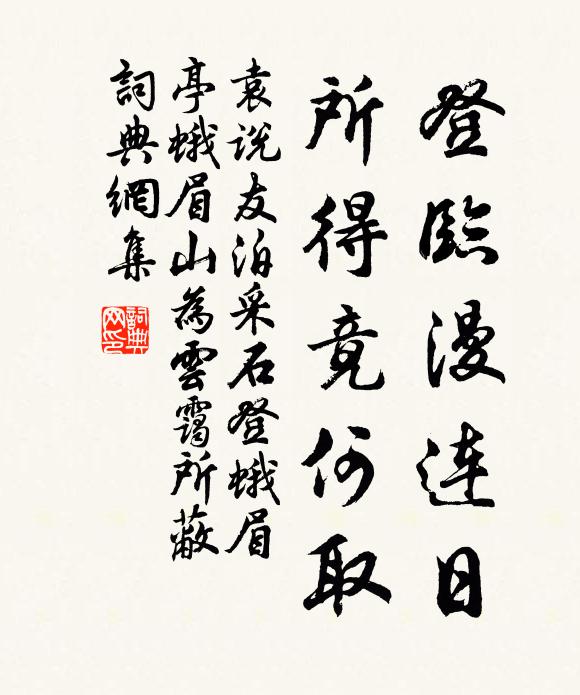 登臨漫連日
所得竟何取
袁說友泊采石登蛾眉
亭蛾眉山為雲靄所蔽
詞典網集
詞典
网印